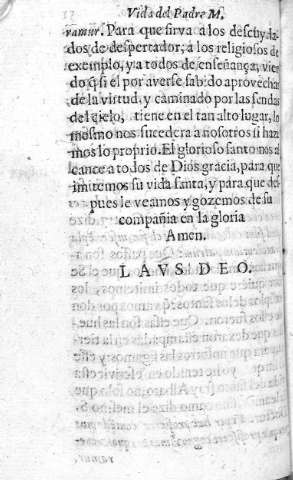 Vida del Padre M.
ramur. Para que sirva a los descuyda
dos de despertador, a los religiosos de
exemplo, y a todos de enseñança, vien
do q̃ si el por averse sabido aprovechar
de la virtud, y caminado por las sendas
del cielo, tiene en el tan alto lugar, lo
mesmo nos sucedera a nosotros si haz
mos lo proprio. El glorioso santo nos al
cance a todos de Dios gracia, para que
imitemos su vida santa, y para que des
pues le veamos y gozemos de su
compañia en la gloria
Amen.
LAVS DEO.